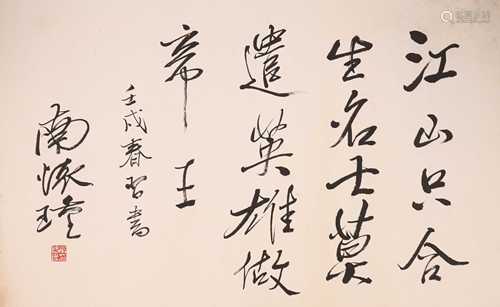 江山只合
生名士莫
遣英雄做
帝王
壬戌春習書
南懷瑾